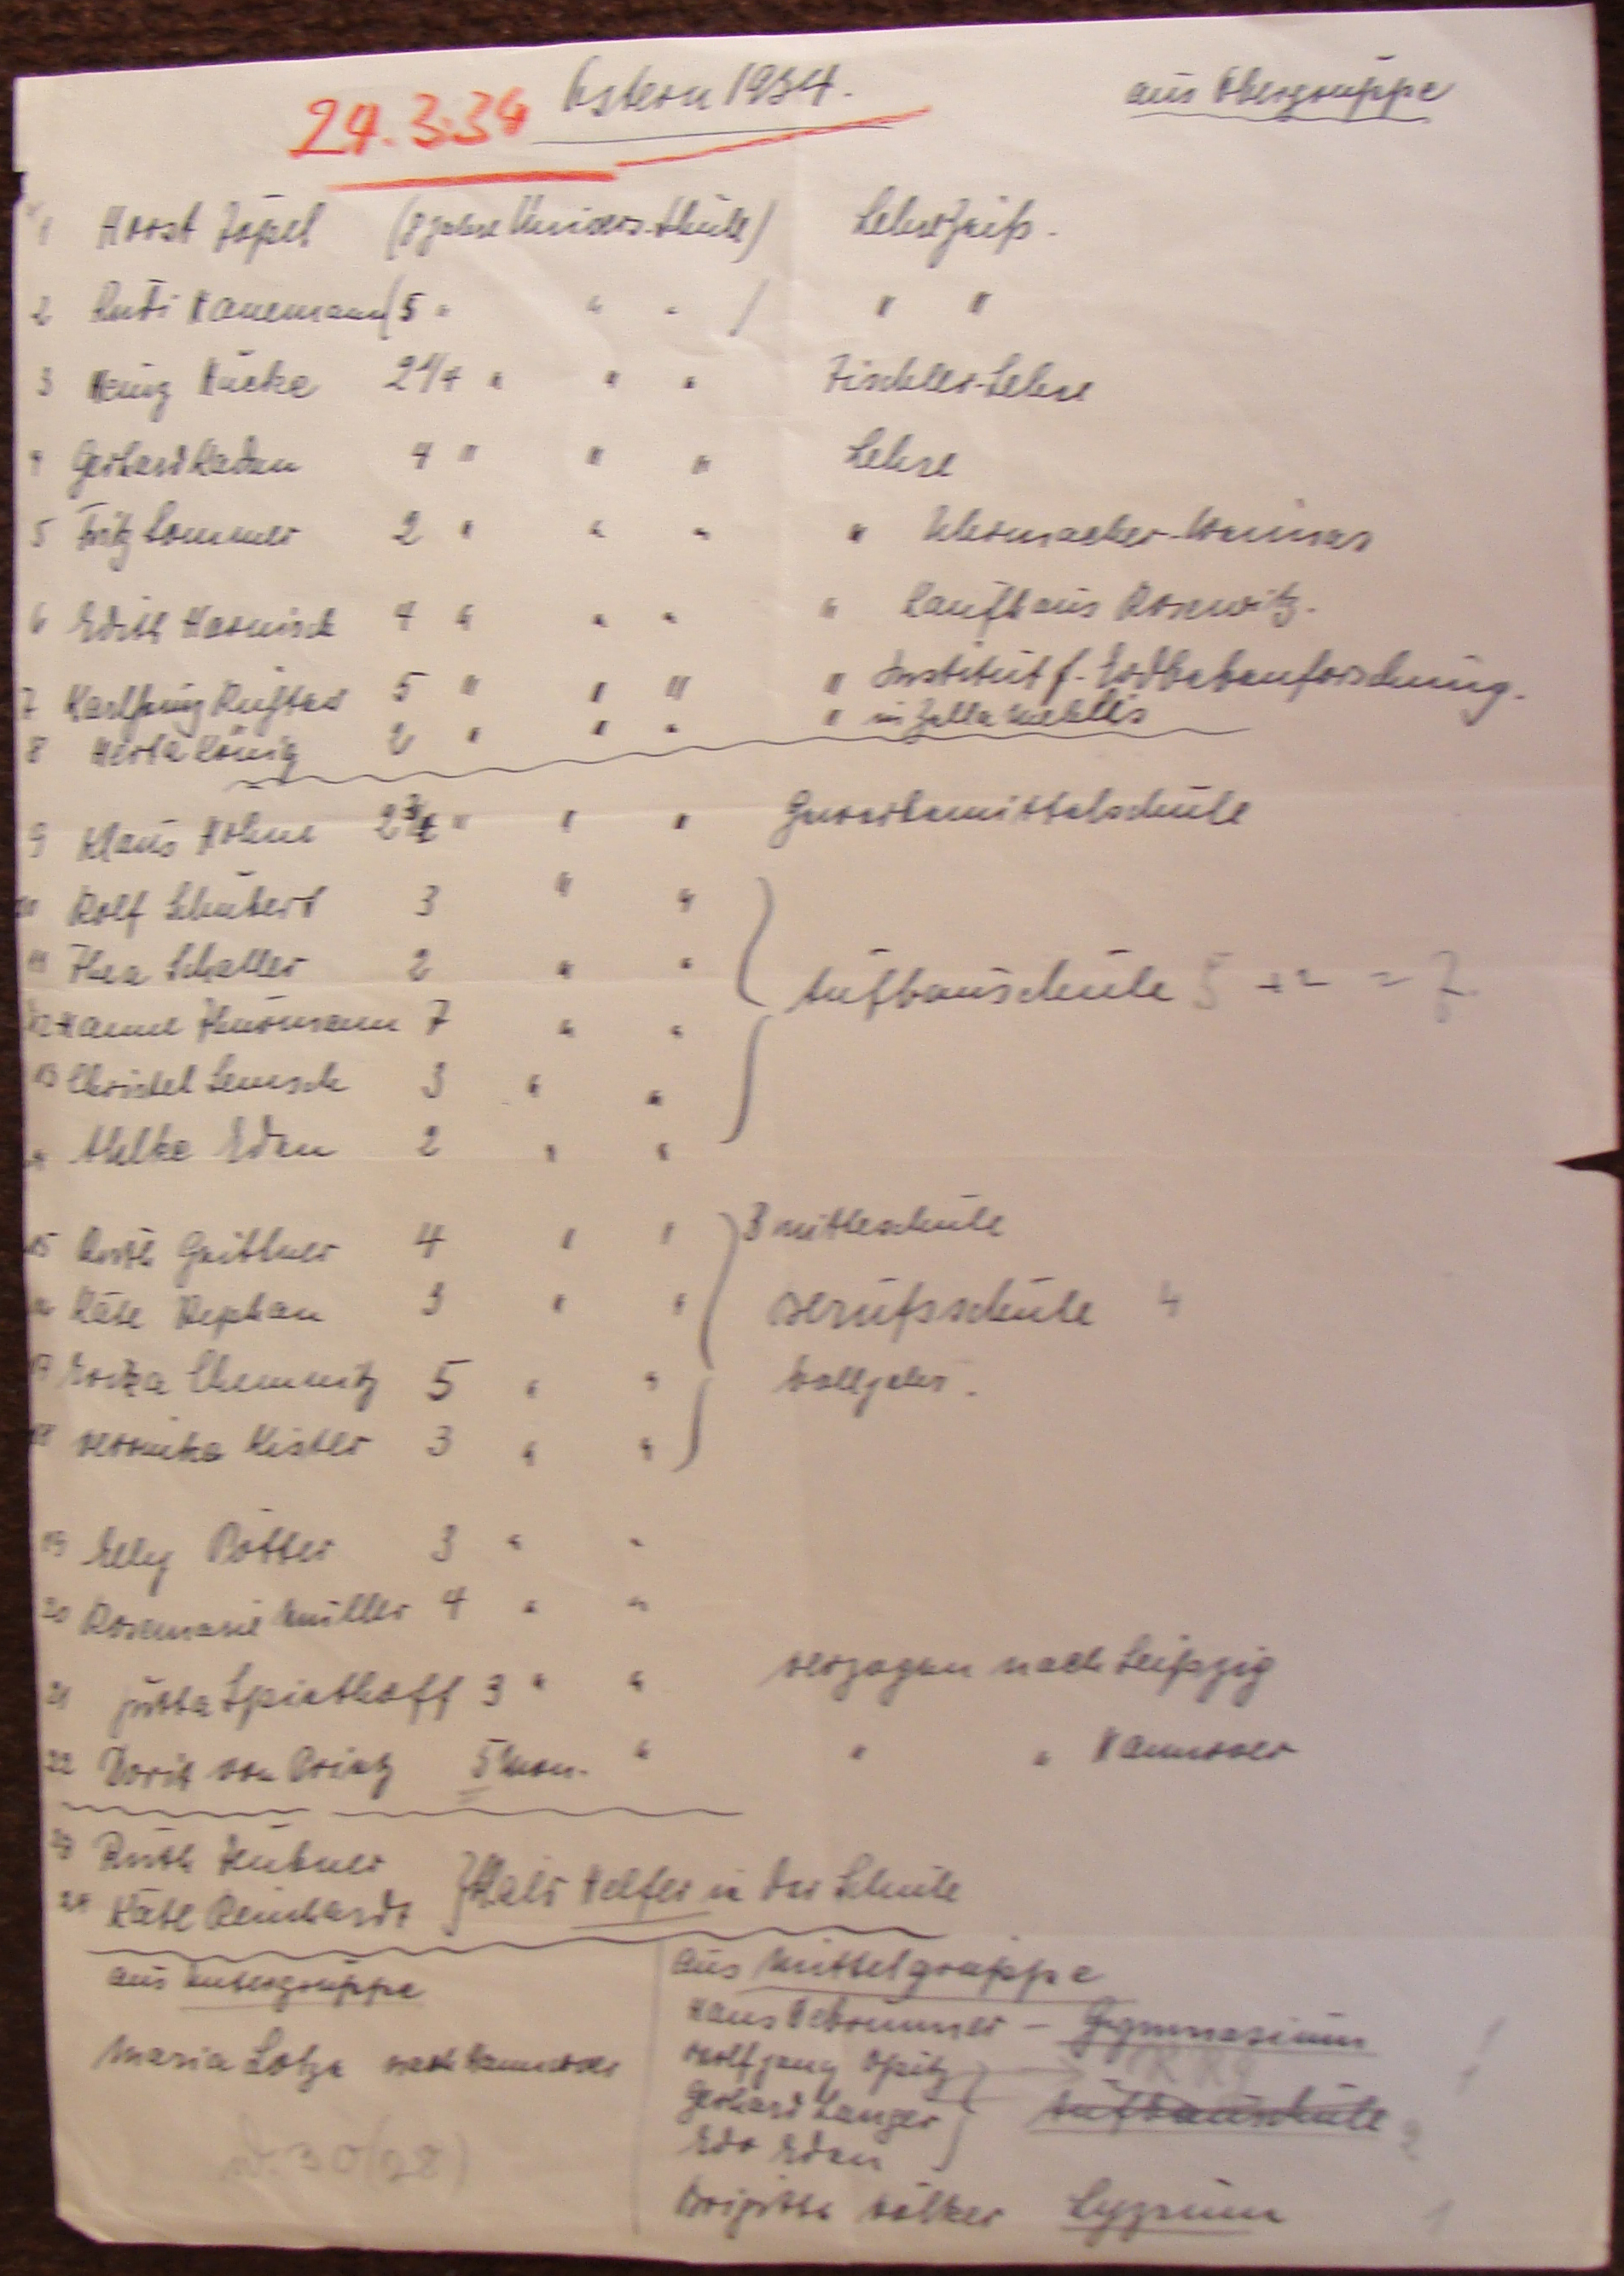 24.3.34 Ostern 1934. aus Obergruppe
1 Horst Zöpel (8 Jahre Univers.-Schule) Lehre Zeiß.
2 Rudi Hanemann (5 " " " ) " "
3 Heinz Hücke 2 1/4 " " " Tischler-Lehre
4 Gerhard Kaden 4 " " " Lehre
5 Fritz Sommer 2 " " " " Uhrmacher-Weimar
6 Edith Harnisch 4 " " " " Kaufhaus Rosewitz.
7 Karlheinz Richter 5 " " " " Institut f. Erdbebenforschung.
8 Herta König 2 " " " " in Zella Mehlis
9 Klaus Höhne 2 3/4 " " " Gewerbemittelschule
10 Rolf Schubert 3 " "
11 Thea Schaller 2 " "
Aufbauschule 5 + 2 = 7
12 Hanne Thürmann 7 " "
13 Christel 3 " "
14 Ahlke Eden 2 " "
15 Ruth Geithner 4 " " 3 Mittelschule
16 Käte Stephan 3 " " Berufsschule 4
17 Erika Chemnitz 5 " " Volljahr.
18 Veronika Kister 3 " "
19 Elly Pötter 3 " "
20 Rosemarie Müller 4 " "
21 Jutta Spiethoff 3 " " verzogen nach Leipzig
22 Dorit von 5 Mon. " " " Hannover
23 Ruth Hübner
als Helfer in der Schule
24 Käte Reinhardt
aus Untergruppe
Maria Lotze nach Hannover
aus Mittelgruppe
Hans - Gymnasium 1
Wolfgang Opitz 1
Gerhard Langer Aufbauschule 2
Edo Eden
Brigitte Völker Lyzeum 1